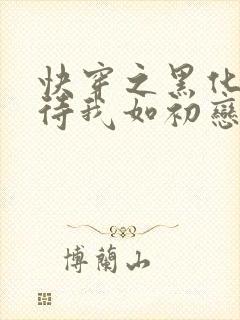 快穿之黑化
待我如初戀
博蘭山